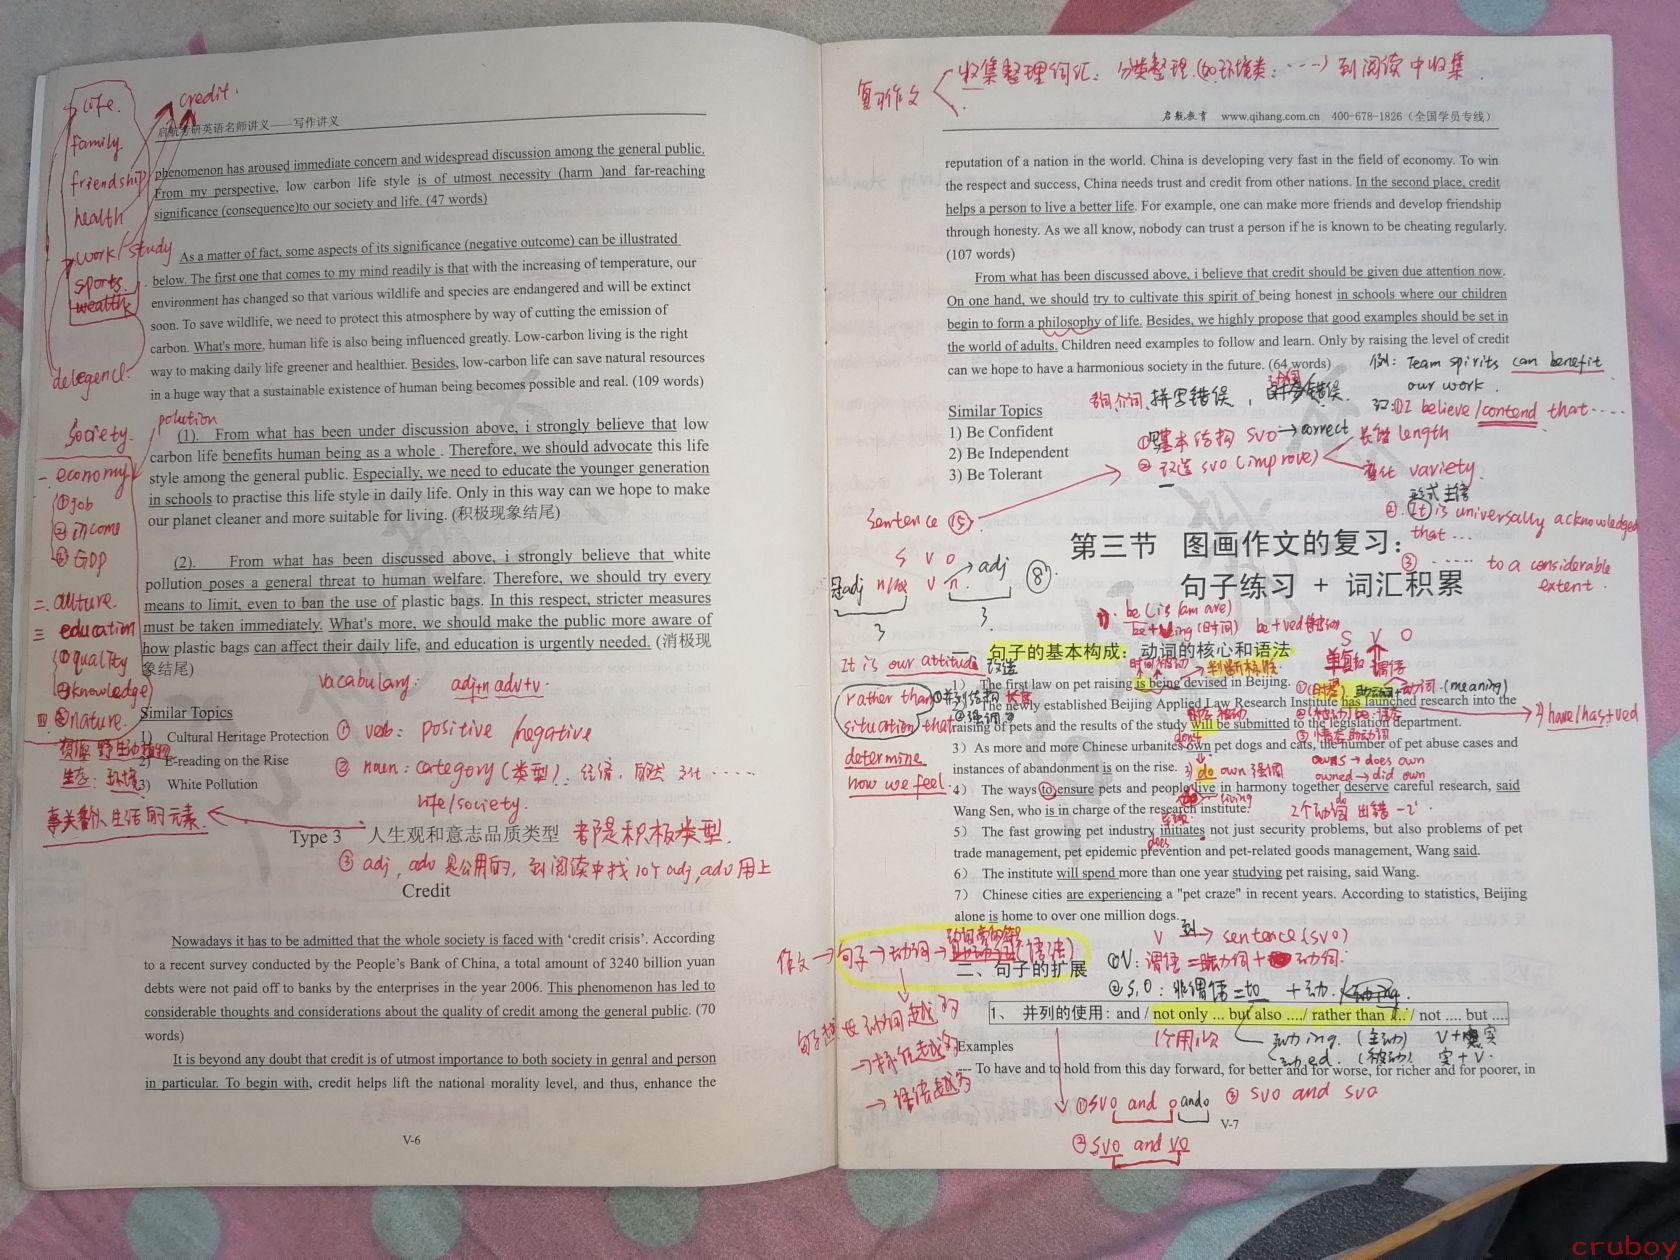 credit.
life.
family
friendship
health
work/study
sports.
wealth
delegence.
启航考研英语名师讲义——写作讲义
phenomenon has aroused immediate concern and widespread discussion among the general public.
From my perspective, low carbon life style is of utmost necessity (harm )and far-reaching
significance (consequence)to our society and life. (47 words)
As a matter of fact, some aspects of its significance (negative outcome) can be illustrated
below. The first one that comes to my mind readily is that with the increasing of temperature, our
environment has changed so that various wildlife and species are endangered and will be extinct
soon. To save wildlife, we need to protect this atmosphere by way of cutting the emission of
carbon. What's more, human life is also being influenced greatly. Low-carbon living is the right
way to making daily life greener and healthier. Besides, low-carbon life can save natural resources
in a huge way that a sustainable existence of human being becomes possible and real. (109 words)
polution
Society.
(1). From what has been under discussion above, i strongly believe that low
carbon life benefits human being as a whole . Therefore, we should advocate this life
style among the general public. Especially, we need to educate the younger generation
in schools to practise this life style in daily life. Only in this way can we hope to make
our planet cleaner and more suitable for living. (积极现象结尾)
一 economy
①job
②income
③GDP
二. culture.
三 education
①quality
②knowledge
四 nature.
资源 野生动植物
生态: 环境
事关餐人生活的元素.
(2). From what has been discussed above, i strongly believe that white
pollution poses a general threat to human welfare. Therefore, we should try every
means to limit, even to ban the use of plastic bags. In this respect, stricter measures
must be taken immediately. What's more, we should make the public more aware of
how plastic bags can affect their daily life, and education is urgently needed. (消极现
象结尾)
vacabulary: adj+n adv+v.
Similar Topics
1) Cultural Heritage Protection
2) E-reading on the Rise
3) White Pollution
① verb: positive /negative
② noun: category (类型): 经济, 自然 文化 ·····
life/society.
Type 3 人生观和意志品质类型
都是积极类型.
③ adj, adv 是公用的, 到阅读中找10个adj,adv用上
Credit
Nowadays it has to be admitted that the whole society is faced with ‘credit crisis’. According
to a recent survey conducted by the People’s Bank of China, a total amount of 3240 billion yuan
debts were not paid off to banks by the enterprises in the year 2006. This phenomenon has led to
considerable thoughts and considerations about the quality of credit among the general public. (70
words)
It is beyond any doubt that credit is of utmost importance to both society in genral and person
in particular. To begin with, credit helps lift the national morality level, and thus, enhance the
V-6
复习作文
收集整理词汇: 分类整理.(如环境类: ·····) 到阅读中收集.
启航教育 www.qihang.com.cn 400-678-1826（全国学员专线）
reputation of a nation in the world. China is developing very fast in the field of economy. To win
the respect and success, China needs trust and credit from other nations. In the second place, credit
helps a person to live a better life. For example, one can make more friends and develop friendship
through honesty. As we all know, nobody can trust a person if he is known to be cheating regularly.
(107 words)
From what has been discussed above, i believe that credit should be given due attention now.
On one hand, we should try to cultivate this spirit of being honest in schools where our children
begin to form a philosophy of life. Besides, we highly propose that good examples should be set in
the world of adults. Children need examples to follow and learn. Only by raising the level of credit
can we hope to have a harmonious society in the future. (64 words)
例: Team spirits can benefit
our work.
①I believe/contend that ····
介词、拼写错误,
Similar Topics
1) Be Confident
2) Be Independent
3) Be Tolerant
① 基本结构 SVO → correct
② 改造 SVO (improve)
长短 length
变化 variety.
形式主语
②. It is universally acknowledged
that ...
③ ····· to a considerable
extent.
Sentence ⑮
S V O
n v n.
adj
⑧
3
3
第三节 图画作文的复习：
句子练习 + 词汇积累
be (is/am are)
be+ing (时间) be+ved
S V O
It is our attitude
rather than
situation that
determine
how we feel.
一、句子的基本构成：动词的核心和语法
1） The first law on pet raising is being devised in Beijing.
2） The newly established Beijing Applied Law Research Institute has launched research into the
raising of pets and the results of the study will be submitted to the legislation department.
3）As more and more Chinese urbanites own pet dogs and cats, the number of pet abuse cases and
instances of abandonment is on the rise.
do own 强调
owns → does own
owned → did own
have/has+ved
(meaning)
4） The ways to ensure pets and people live in harmony together deserve careful research, said
Wang Sen, who is in charge of the research institute.
living
2个动词 出错 -2'.
5） The fast growing pet industry initiates not just security problems, but also problems of pet
trade management, pet epidemic prevention and pet-related goods management, Wang said.
does
6） The institute will spend more than one year studying pet raising, said Wang.
7） Chinese cities are experiencing a "pet craze" in recent years. According to statistics, Beijing
alone is home to over one million dogs.
V 到→ sentence (SVO)
作文 → 句子 → 动词 → 助动词(语法)
二、句子的扩展
①V: 谓语 = 助动词 + 动词.
②S,O: 非谓语 = to + 动.
1、 并列的使用：and / not only ... but also ..../ rather than .... / not .... but ....
句子越多 动词越多
→ 标志越多
→ 语法越多
动ing. (主动)
动ed. (被动)
Examples
--- To have and to hold from this day forward, for better and for worse, for richer and for poorer, in
①SVO and O and O
③ SVO and SVO
②SVO and VO
V-7
cruboy